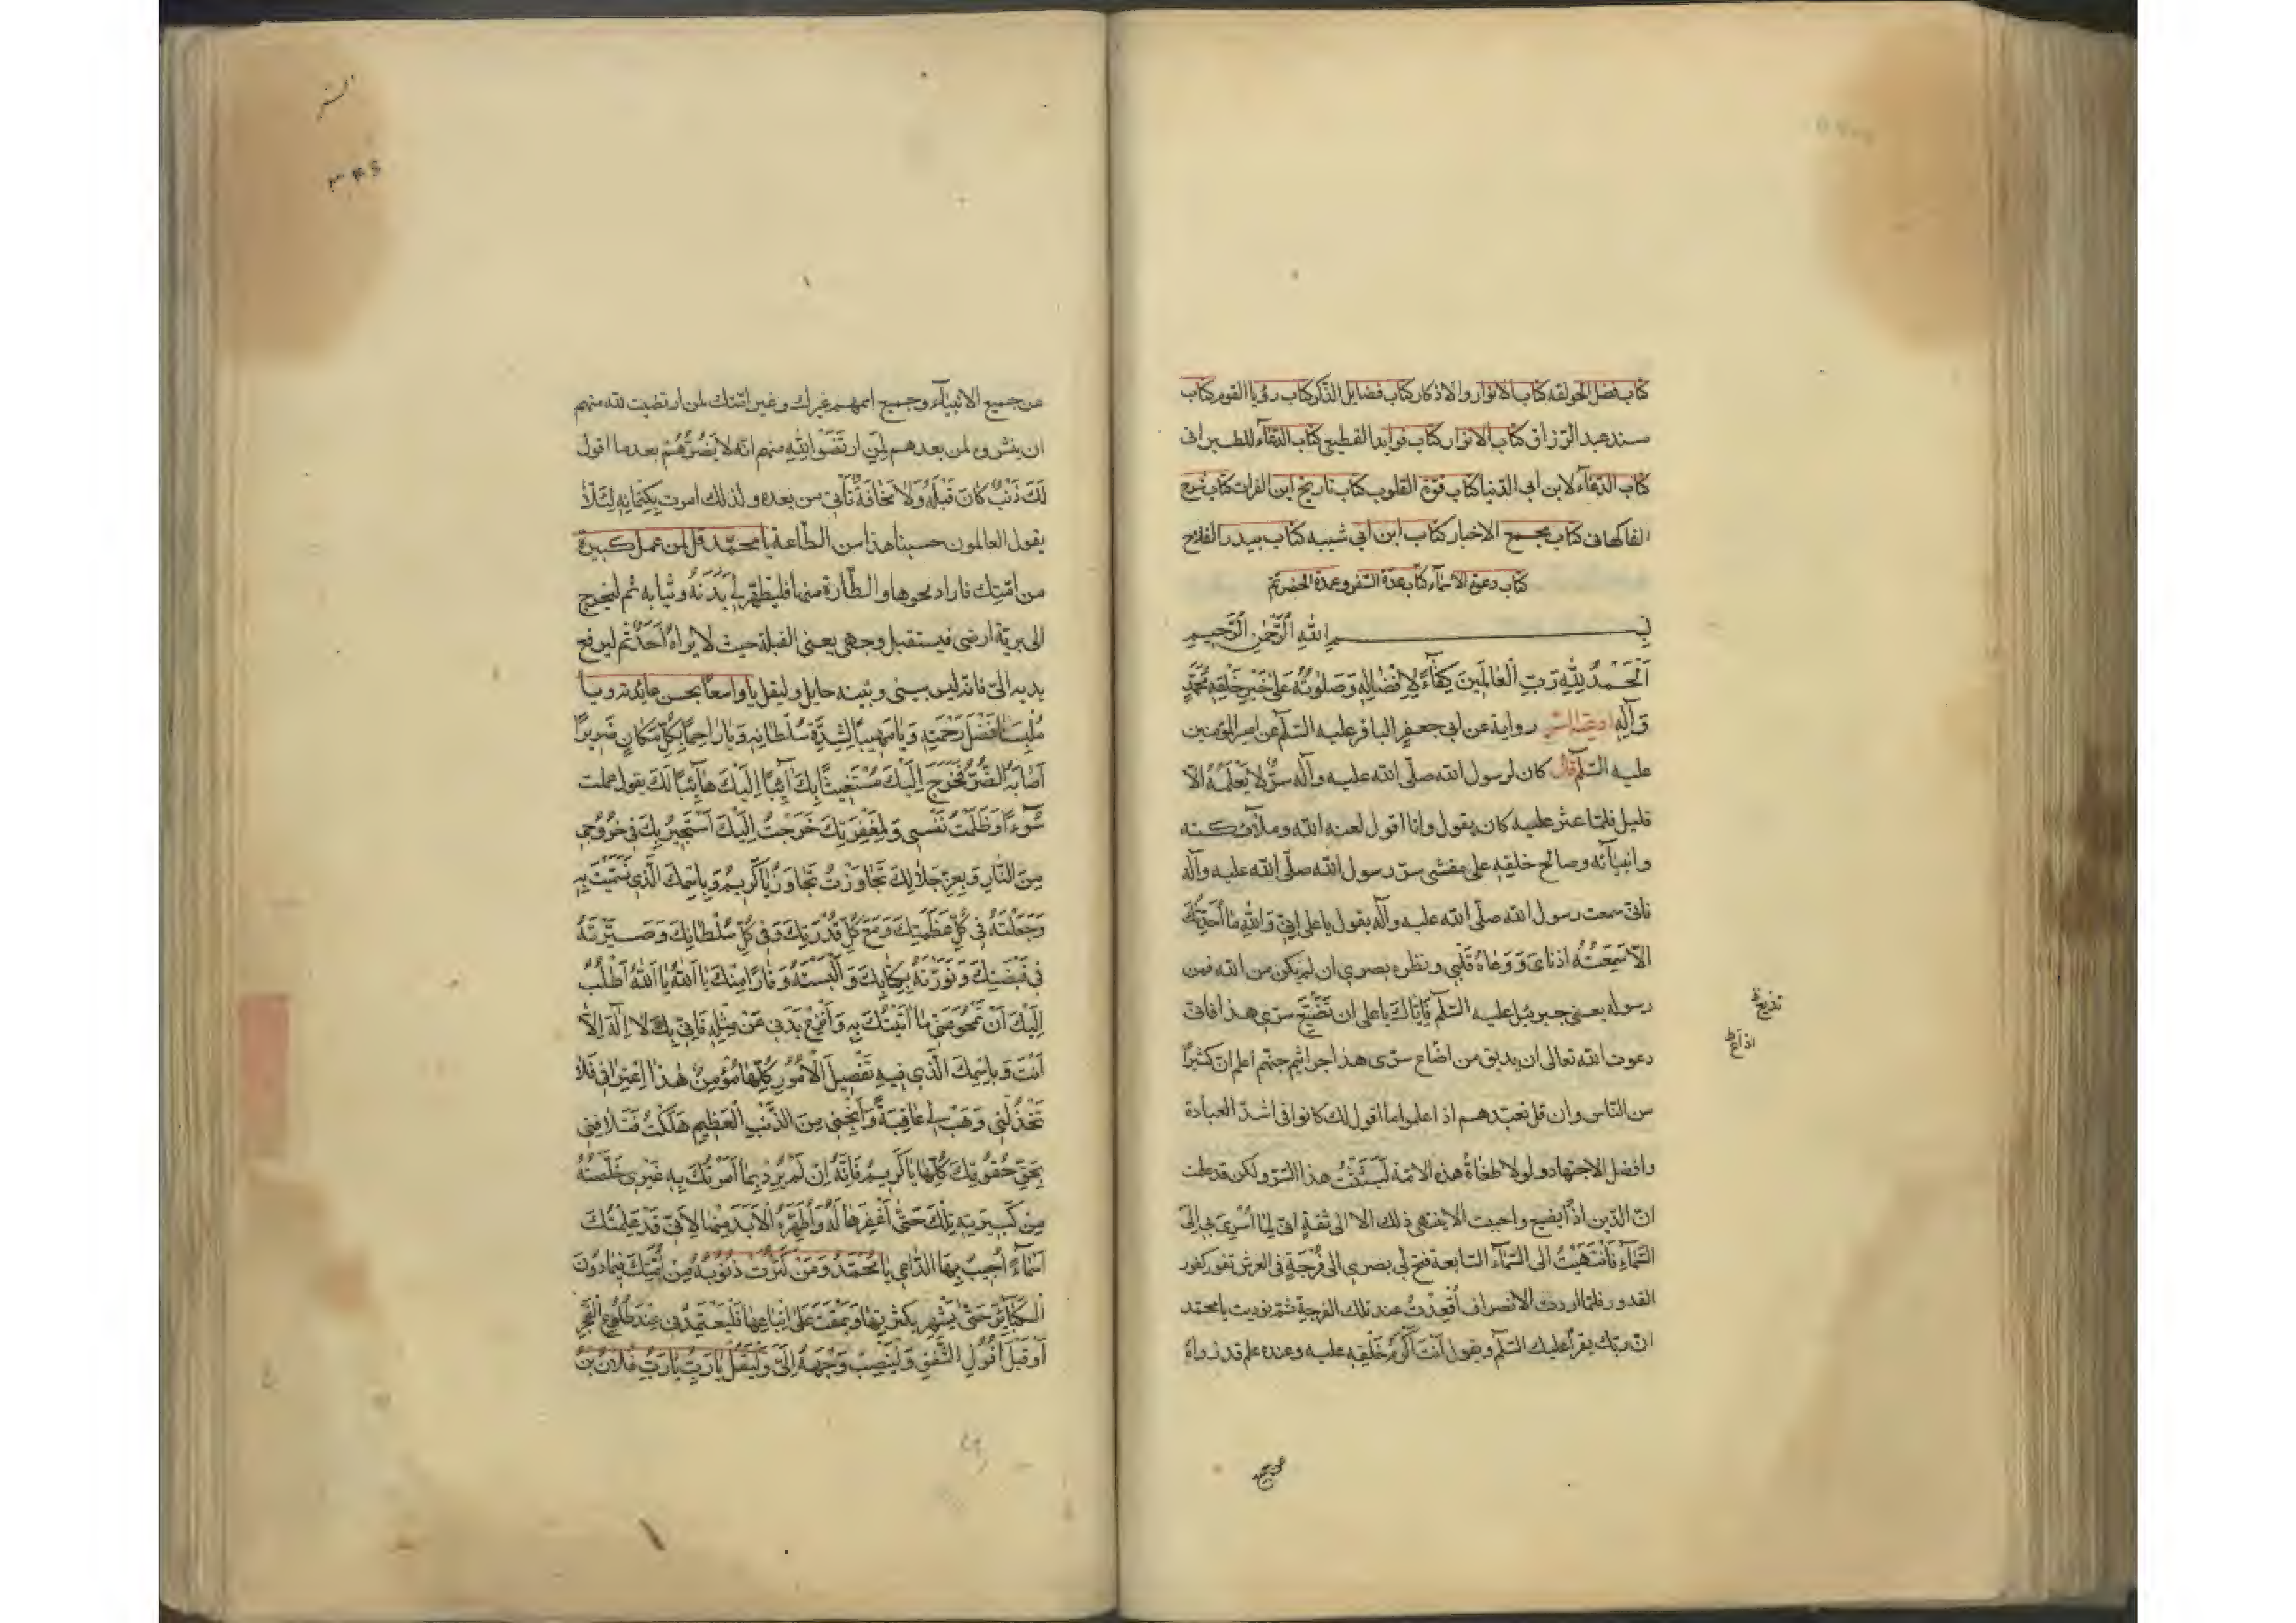 كتاب فضل الحولقه كتاب الانوار والاذكار كتاب فضايل الذكر كتاب رؤيا القوم كتاب
مسند عبد الرزاق كتاب الانوار كتاب فوايد القطيعى كتاب الدعآء للطبرانى
كتاب الدعآء لابن ابى الدنيا كتاب قوة القلوب كتاب تاريخ ابن الفرات كتاب شرح
الفاكهانى كتاب مجمع الاخبار كتاب ابن ابى شيبه كتاب بيدر الفلاح
كتاب دعوة الاسمآء كتاب عدة السفر وعمدة الحضر تم
بسم الله الرحمن الرحيم
اَلْحَمْدُ لِلّهِ رَبِّ الْعالَمينَ كِفآءً لِاِفْضالِهِ وَصَلَوتُهُ عَلى خَيْرِ خَلْقِهِ مُحَمَّدٍ
وَآلِهِ ادعية السر رواية عن ابى جعفر الباقر عليه السّلم عن امير المؤمنين
عليه السّلم قال كان لرسول الله صلّى الله عليه وآله سرّ لا يَعْلَمُهُ الّا
قليل فلمّا عثر عليه كان يقول وانا اقول لعنه الله وملآئكته
وانبيآئه وصالح خلقه على مفشى سرّ رسول الله صلّى الله عليه وآله
فانّى سمعت رسول الله صلّى الله عليه وآله يقول يا على اِنّى وَاللهِ ما اُحَدِّثُكَ
الّا سَمِعَتْهُ اذناىَ وَوَعاهُ قَلْبى ونظره بصرى ان لم يكن من الله فمن
رسوله يعنى جبرئيل عليه السّلم فَاِيّاكَ يا على ان تُضَيِّعَ سرّى هذا فانّى
دعوت الله تعالى ان يديق من اضاع سرّى هذا جراثيم جهنّم اعلم انّ كثيرًا
من النّاس وان قل تعبّدهم اذا علموا ما اقول لك كانوا فى اشدّ العبادة
وافضل الاجتهاد ولولا طغاةُ هذه الامّة لَبَثَثْتُ هذا السّرّ ولكن قد علمت
انّ الدّين اذًا يضيع واحببت الّا ينتهى ذلك الّا الى ثقةٍ انّى لمّا اُسْرِىَ بى اِلَى
السَّمآءِ فَانْتَهَيْتُ الى السّمآء السّابعة فتح لى بصرى الى فُرْجَةٍ فى العرش تفور كفور
القدور فلمّا اردت الانصراف اُقْعِدْتُ عند تلك الفرجة ثمّ نوديت يا محمّد
انّ ربّك يقرأ عليك السّلم ويقول اَنْتَ اَكْرَمُ خَلْقِهِ عليه وعنده علم قد زواهُ
تذيع ظ
اذاع ظ
السر
۳۴۶
عن جميع الانبيآء وجميع اممهم غيرك وغير امّتك لمن ارتضيت لله منهم
ان ينشروه لمن بعدهم لِمَنِ ارتَضَوْا لِلّهِ منهم انّه لا يَضُرُّهُمْ بعد ما اقول
لَكَ ذَنْبٌ كانَ قَبْلَهُ وَلا مَخافَةٌ تَأتى من بعده ولذلك امرت بِكِتْمانِهِ لِئَلّا
يقول العالمون حسبنا هذا من الطّاعة يا محمّد قل لمن عمل كبيرة
من امّتك فاراد محوها والطّهارة منها فليطهّر لى بَدَنَهُ وثيابه ثم ليخرج
الى بريّة ارضى فيستقبل وجهى يعنى القبلة حيث لا يراهُ اَحَدٌ ثم ليرفع
يديه الىّ فانّه ليس بينى وبينه حايل وليقل يا واسعًا بحسن عائدته ويا
مُلْبِسَنا فَضْلَ رَحْمَتِهِ وَيا مَهيبًا لِشِدَّةِ سُلْطانِهِ وَيا راحِمًا بِكُلِّ مَكانٍ ضَريرًا
اَصابَهُ الضُّرُّ فَخَرَجَ اِلَيْكَ مُسْتَغيثًا بِكَ آئِبًا اِلَيْكَ هآئِبًا لَكَ يقول عملت
سُوءًا وَظَلَمْتُ نَفْسى وَلِمَغْفِرَتِكَ خَرَجْتُ اِلَيْكَ اَسْتَجيرُ بِكَ فى خُرُوجى
مِنَ النّارِ وَبِعِزِّ جَلالِكَ تَجاوَزْتُ تَجاوَزْ يا كَريمُ وَبِاسْمِكَ الَّذى تَسَمَّيْتَ بِهِ
وَجَعَلْتَهُ فى كُلِّ عَظَمَتِكَ وَمَعَ كُلِّ قُدْرَتِكَ وَفى كُلِّ سُلْطانِكَ وَصَيَّرْتَهُ
فى قَبْضَتِكَ وَنَوَّرْتَهُ بِكِتابِكَ وَاَلْبَسْتَهُ وَقارًا مِنْكَ يا اَللهُ يا اَللهُ اَطْلُبُ
اِلَيْكَ اَنْ تَمْحُوَ عَنّى ما اَتَيْتُكَ بِهِ وَانْزِعْ بَدَنى عَنْ مِثْلِهِ فَاِنّى بِكَ لا اِلهَ اِلّا
اَنْتَ وَبِاسْمِكَ الَّذى فيهِ تَفْصيلُ الْاُمُورِ كُلِّها مُؤْمِنٌ هذَا اعْتِرافى فَلا
تَخْذُلْنى وَهَبْ لى عافِيَةً وَاَنْجِنى مِنَ الذَّنْبِ الْعَظيمِ هَلَكْتُ فَتَلافَنى
بِحَقِّ حُقُوقِكَ كُلِّها يا كَريمُ فَاِنَّهُ اِنْ لَمْ يُرِدْ بِما اَمَرْتُكَ بِهِ غَيْرى خَلَّصْتُهُ
مِنْ كَبيرَتِهِ تِلْكَ حَتّى اَغْفِرَها لَهُ وَاُطَهِّرَهُ الْاَبَدَ مِنْها لِاَنّى قَدْ عَلَّمْتُكَ
اَسْمآءً اُجيبُ بِهَا الدّاعى يا مُحَمَّدُ وَمَنْ كَثُرَتْ ذُنُوبُهُ مِنْ اُمَّتِكَ فيما دُونَ
الْكَبآئِرِ حَتّى يُشْهَرَ بِكَثْرَتِها وَيُمْقَتَ عَلَى اتِّباعِها فَلْيَعْتَمِدْنى عِنْدَ طُلُوعِ الْفَجْرِ
اَوْ قَبْلَ اُفُولِ الشَّفَقِ وَلْيَنْصِبْ وَجْهَهُ اِلَىَّ وَلْيَقُلْ يا رَبِّ يا رَبِّ فُلانُ بْنُ